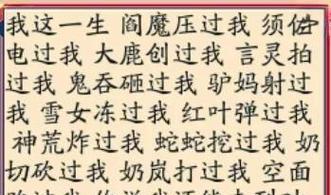 我这一生 阎魔压过我 须佐
电过我 大鹿创过我 言灵拍
过我 鬼吞砸过我 驴妈射过
我 雪女冻过我 红叶弹过我
神荒炸过我 蛇蛇挖过我 奶
切砍过我 奶岚打过我 空面